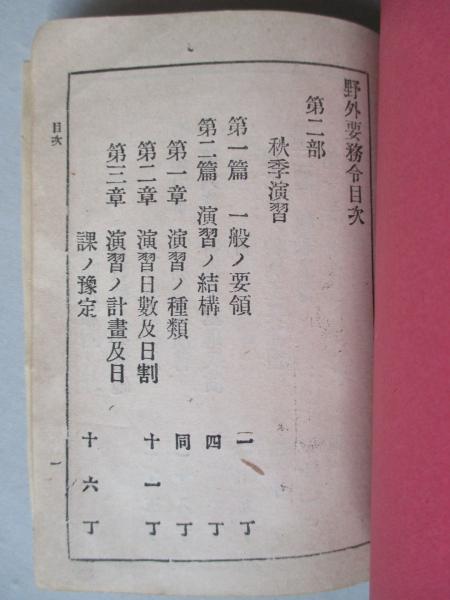 野外要務令目次
第二部
秋季演習
第一篇 一般ノ要領 二丁
第二篇 演習ノ結構 四丁
第一章 演習ノ種類 同丁
第二章 演習日數及日割 十一丁
第三章 演習ノ計畫及日
課ノ豫定 十六丁
目次
一